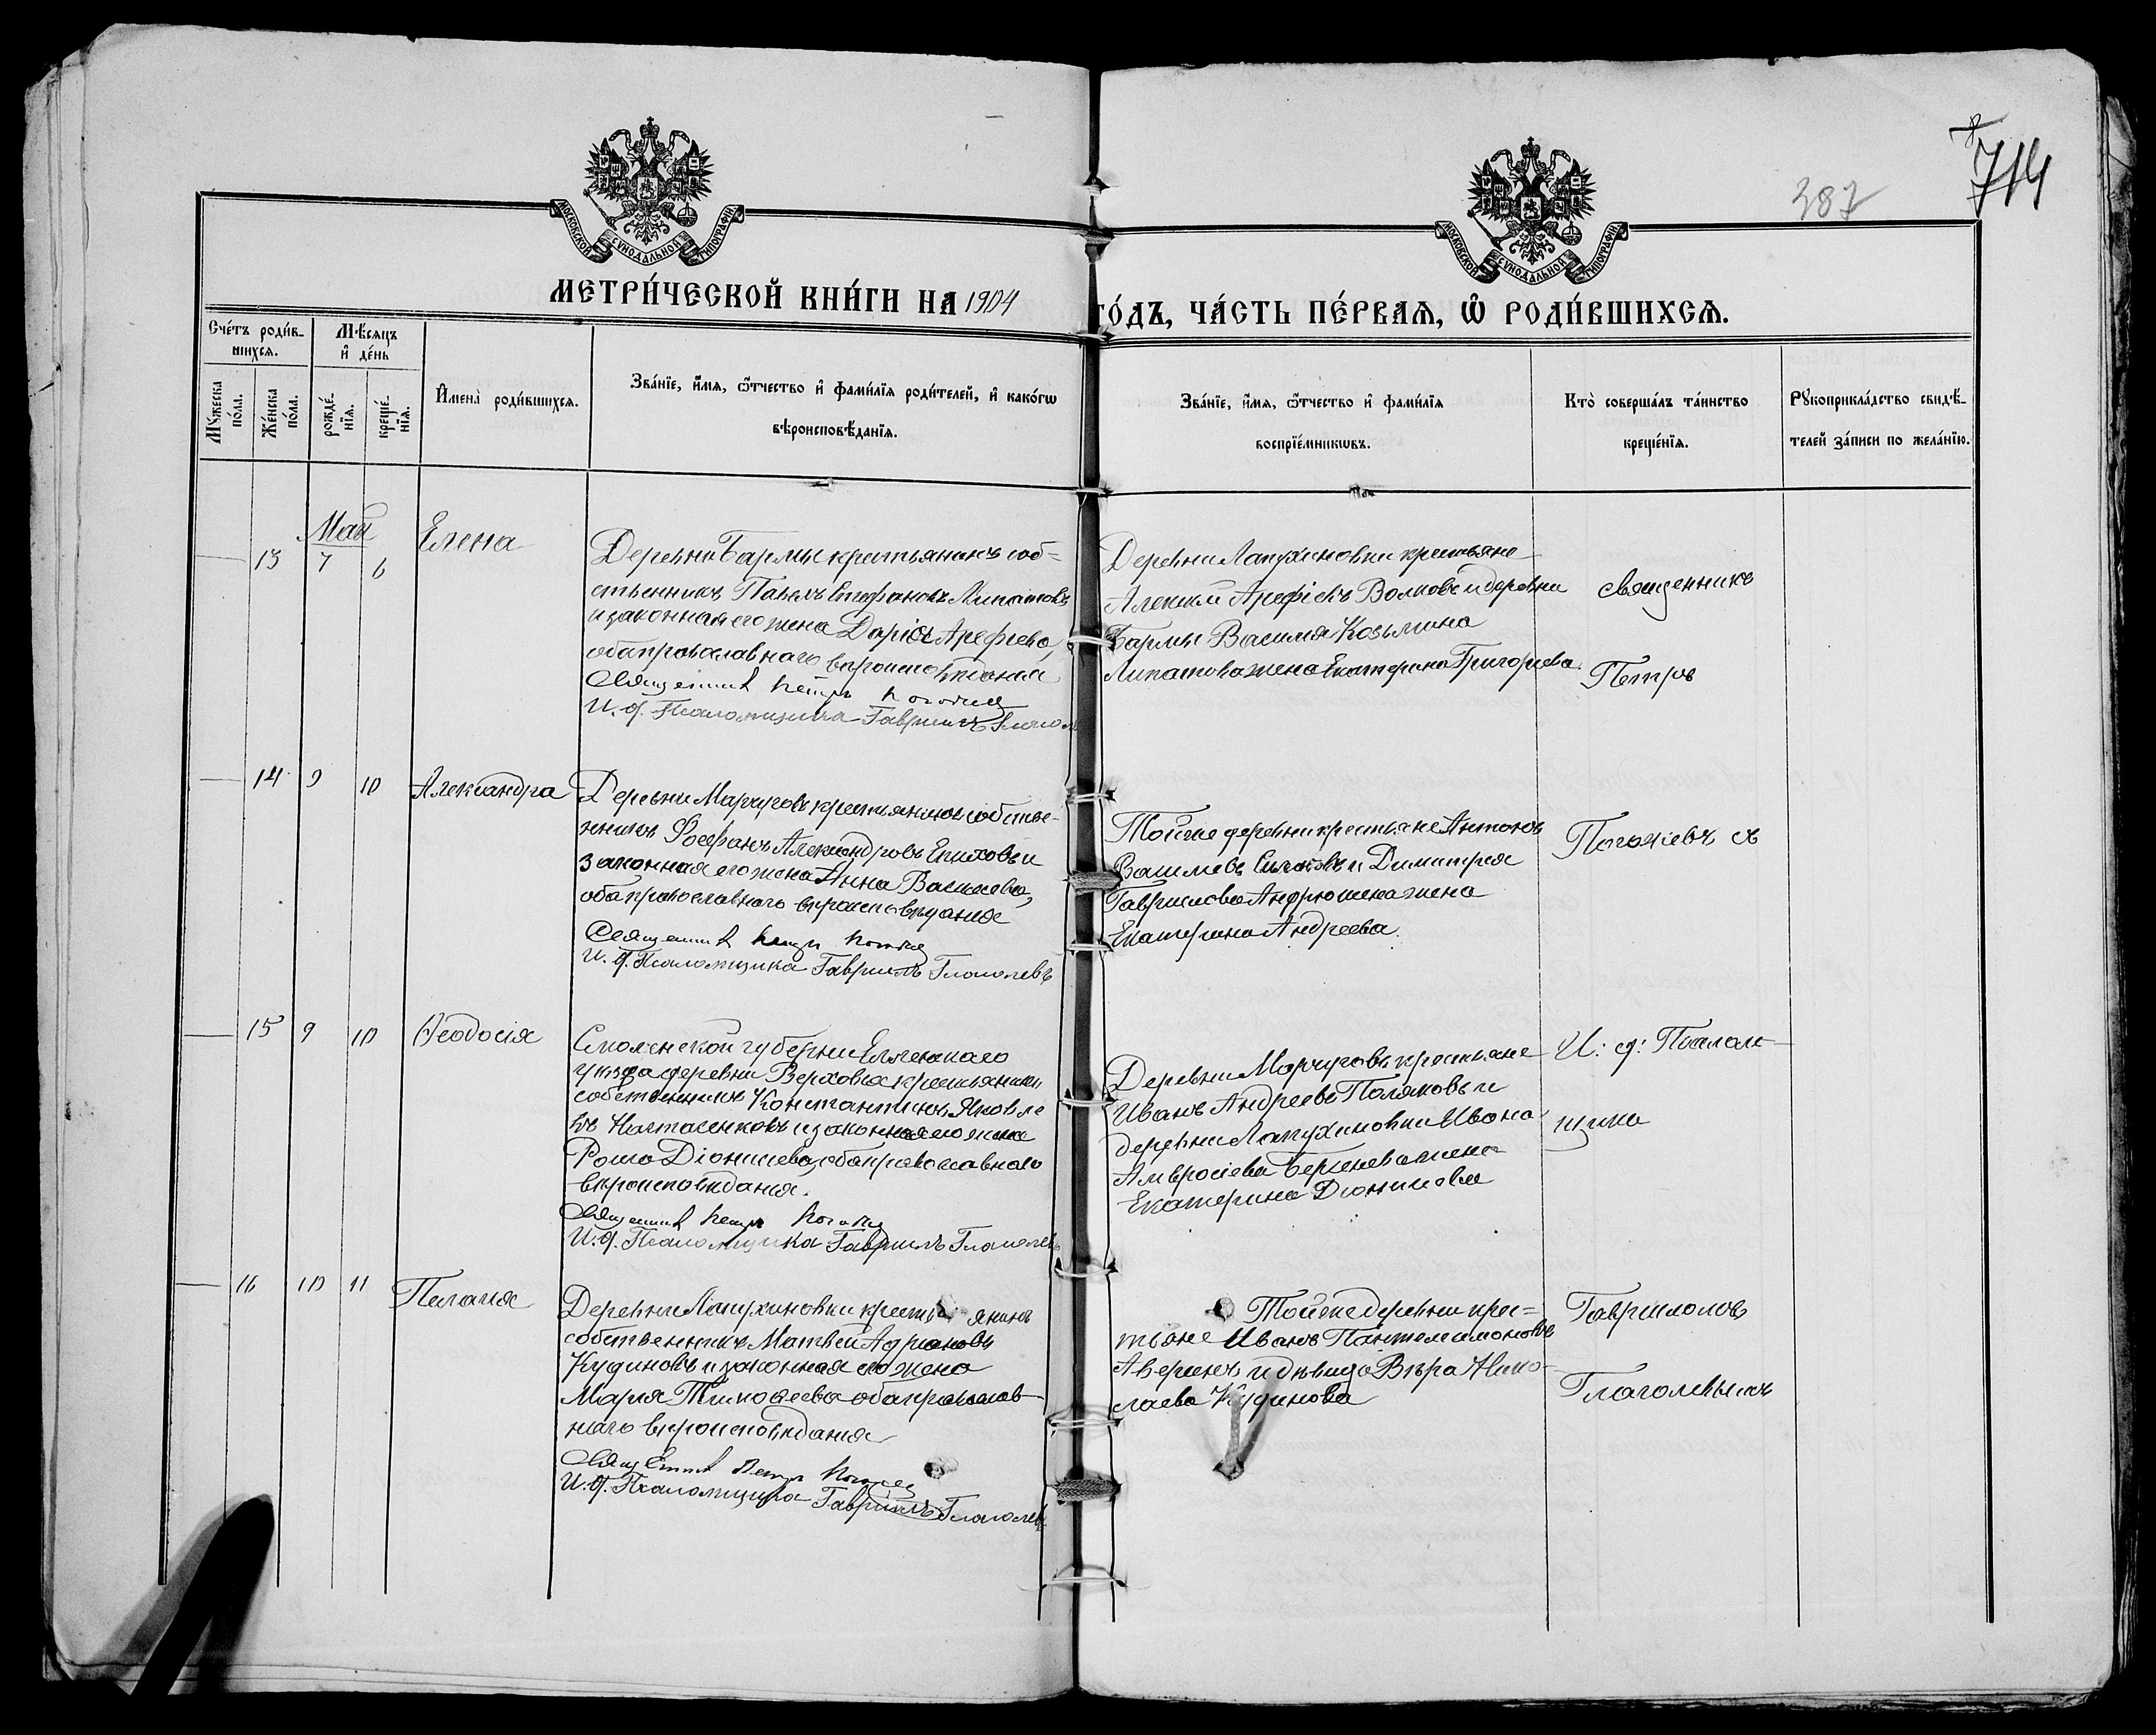 387
714
МОСКОВСКОЙ СѴНОДАЛЬНОЙ ТИПОГРАФІИ
МОСКОВСКОЙ СѴНОДАЛЬНОЙ ТИПОГРАФІИ
МЕТРИ́ЧЕСКОЙ КНИ́ГИ НА 1904
ГО́ДЪ, ЧА́СТЬ ПЕ́РВАѦ, Ѡ҆ РОДИ́ВШИХСѦ.
Сче́тъ роди́в-
шихсѧ.
Мꙋ́жеска по́ла.
Же́нска по́ла.
Мѣ́сѧцъ
и҆ де́нь
рожде́-
нїѧ.
креще́-
нїѧ.
И҆мена̀ роди́вшихсѧ.
Зва́нїе, и҆́мѧ, ѻ҆́тчество и҆ фами́лїѧ роди́телей, и҆ како́гѡ
вѣроисповѣ́данїѧ.
Зва́нїе, и҆́мѧ, ѻ҆́тчество и҆ фами́лїѧ
воспрїе́мникѡвъ.
Кто̀ соверша́лъ та́инство
креще́нїѧ.
Рꙋкоприкла́дство свидѣ́-
телей за́писи по жела́нїю.
Май
13 7 6 Елена
Деревни Бармы крестьянинъ соб-
ственникъ Павелъ Стефановъ Липатовъ
и законная его жена Дарія Арефьева,
оба православнаго вероисповѣданія
Священник Петръ
И. д. Псаломщика Гавриилъ Глагол
Деревни Лапухиновки крестьяне
Алексѣй Арефіевъ Волковъ и деревни
Бармы Василія Козьмина
Липатова жена Екатерина Григорьева.
Священникъ
Петръ
14 9 10 Александра
Деревни крестьянинъ собствен-
никъ Феофанъ Александровъ и
законная его жена Анна Васильева,
оба православнаго вѣроисповѣданія
Священник Петръ
И. д. Псаломщика Гавриилъ Глаголевъ
Той же деревни крестьяне Антонъ
Васильевъ и Димитрія
Гаврилова Андрюшена жена
Екатерина Андреева.
съ
15 9 10 Ѳеодосія
Смоленской губерніи
уѣзда деревни Верховья крестьянинъ
собственникъ Константинъ Яковле
въ и законная его жена
Діонисіева, оба православнаго
вѣроисповѣданія.
Священник Петръ
И. д. Псаломщика Гавриилъ Глаголевъ
Деревни крестьяне
Иванъ Андреевъ Поляковъ и
деревни Лапухиновки Ивана
Амвросіева жена
Екатерина Діонисіева
И: д: Псалом-
щика
16 10 11 Пелагія
Деревни Лапухиновки крестьянинъ
собственникъ Матвѣй Адріановъ
Кудиновъ и законная его жена
Марія Тимофеева оба православ-
наго вѣроисповѣданія
Священник Петръ
И. д. Псаломщика Гавриилъ Глаголевъ
Той же деревни крес=
тьяне Иванъ Пантелеимоновъ
Аверинъ и дѣвица Вѣра Нико-
лаева Кудинова
Гаврииломъ
Глаголевымъ